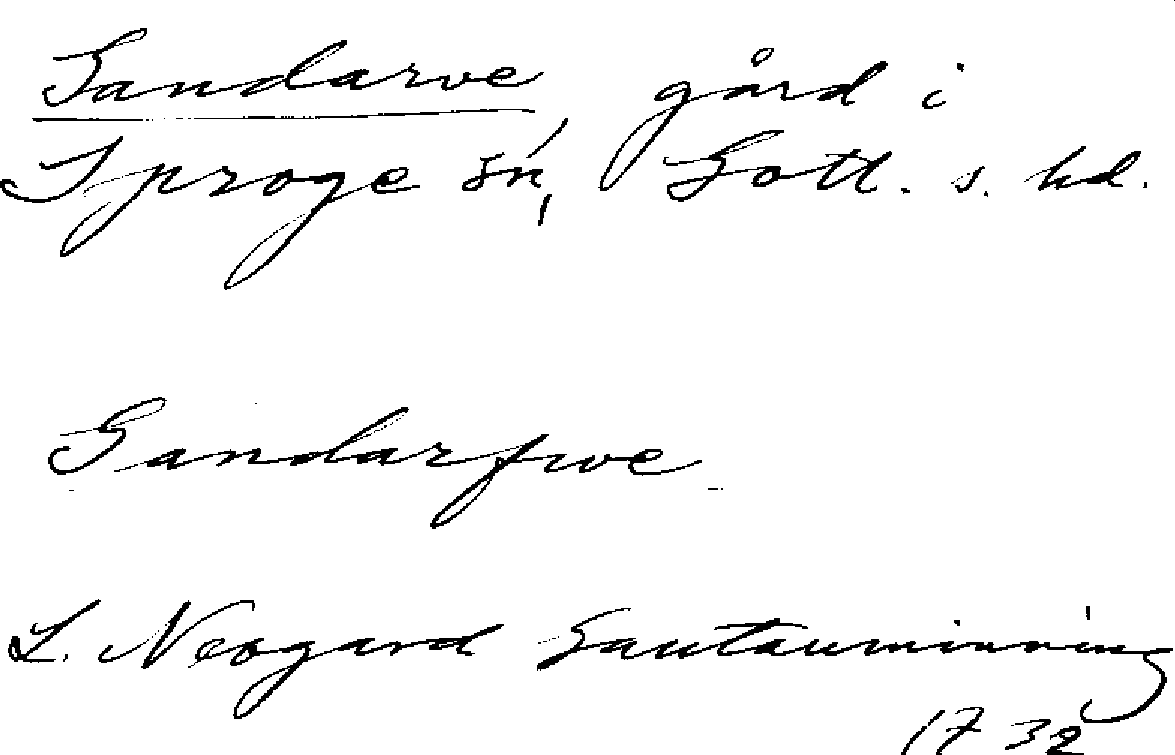 Gandarve gård i
Sproge sn, Gotl. s. hd.
Gandarfwe
L. Neogard Gautauminning
1732